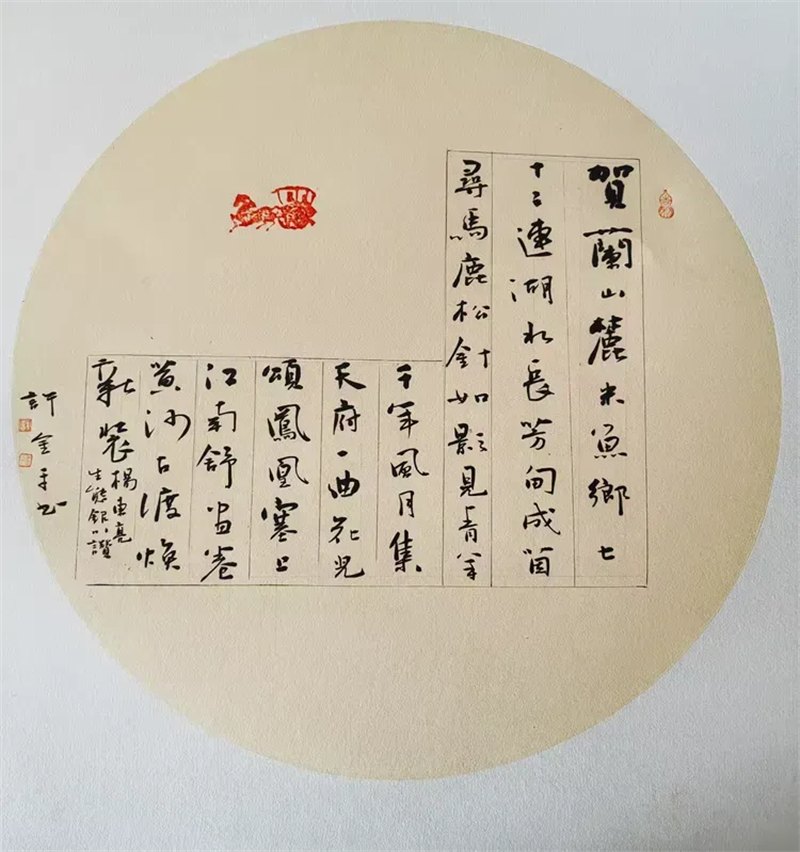 賀蘭山麓米魚鄉七
十二連湖水長芳甸成茵
尋馬鹿松針如影見青羊
千年風月集
天府一曲花兒
頌鳳凰塞上
江南舒畫卷
黄河古渡焕
新裝 楊亮
生態銀川讚
許金平書